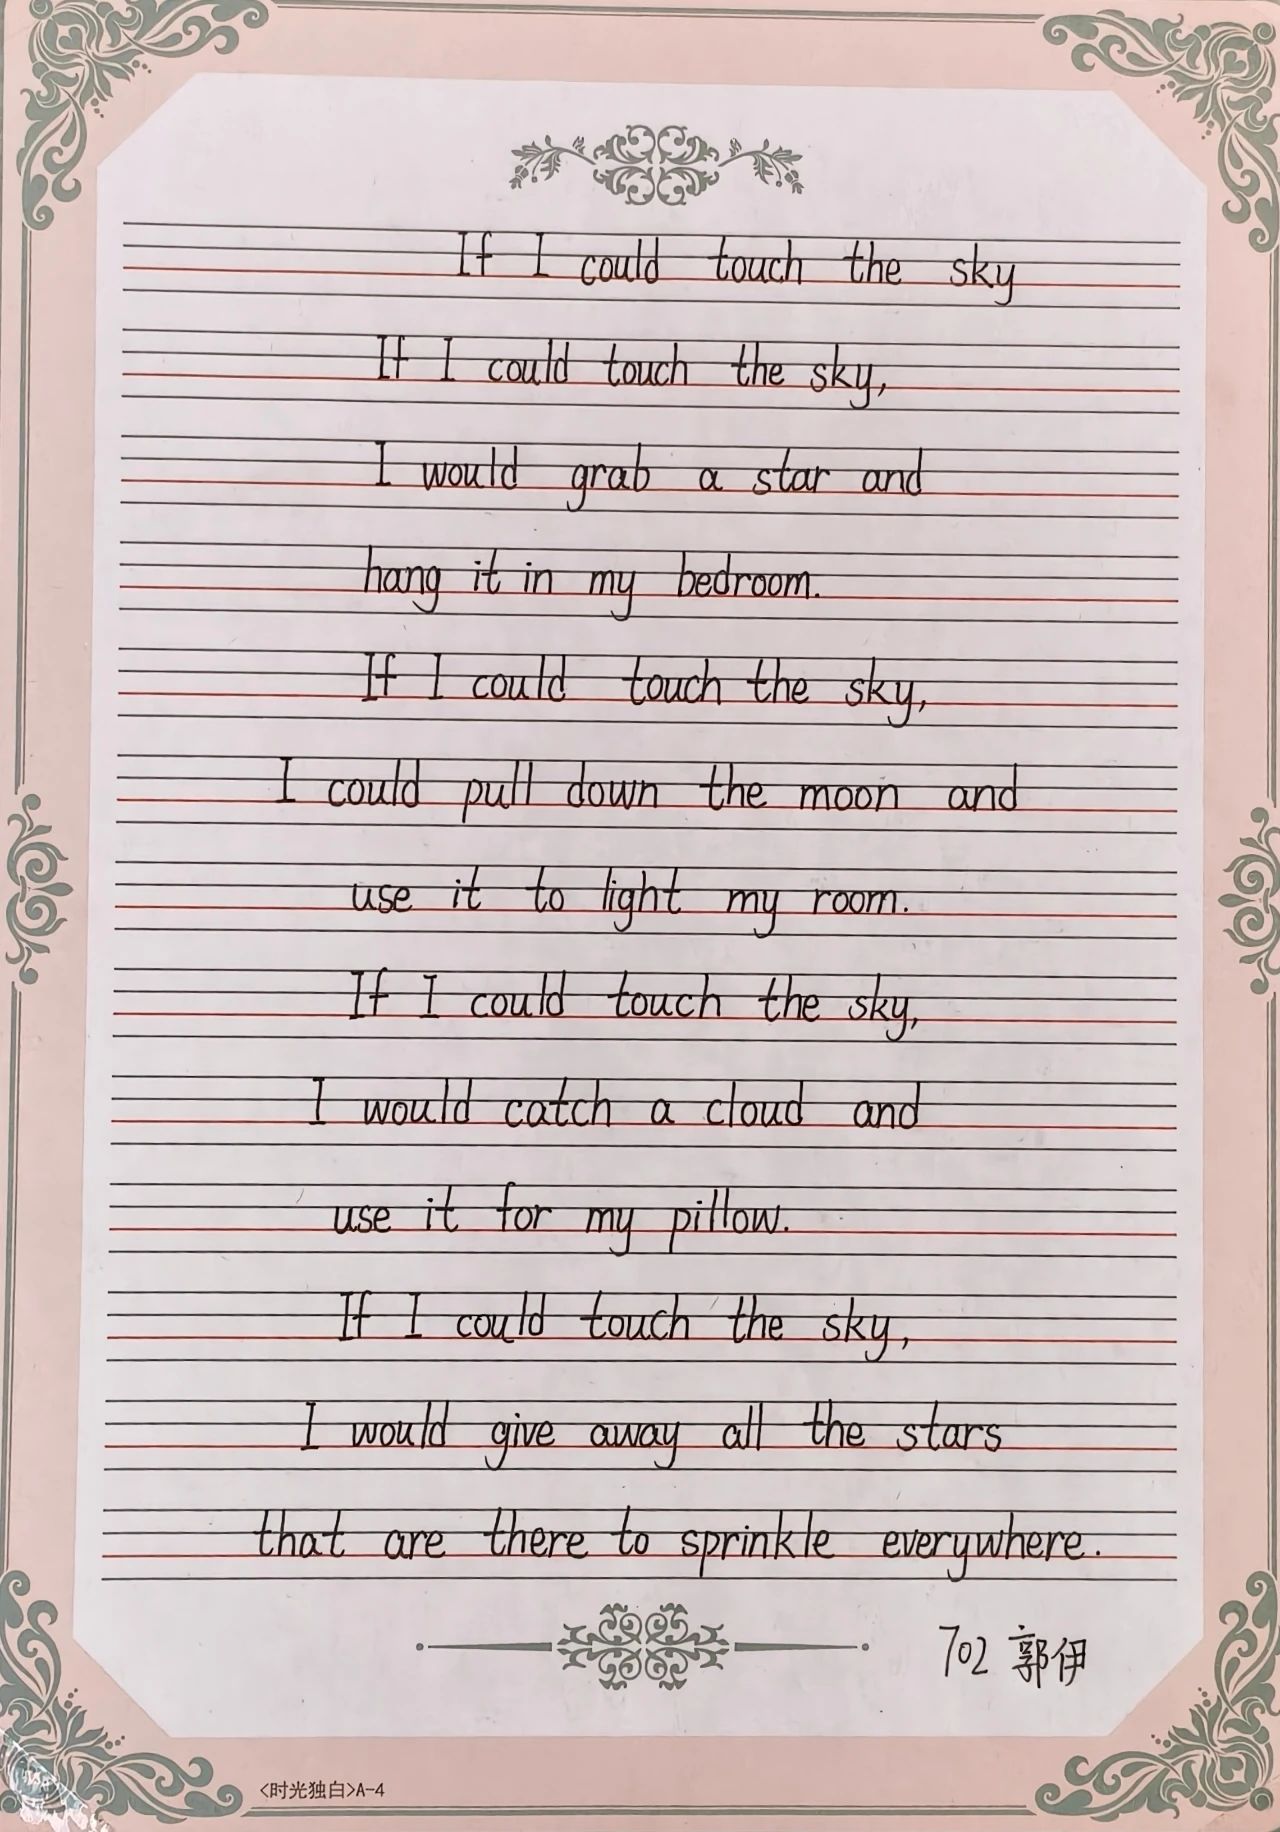 If I could touch the sky
If I could touch the sky,
I would grab a star and
hang it in my bedroom.
If I could touch the sky,
I could pull down the moon and
use it to light my room.
If I could touch the sky,
I would catch a cloud and
use it for my pillow.
If I could touch the sky,
I would give away all the stars
that are there to sprinkle everywhere.
702 郭伊
<时光独白>A-4